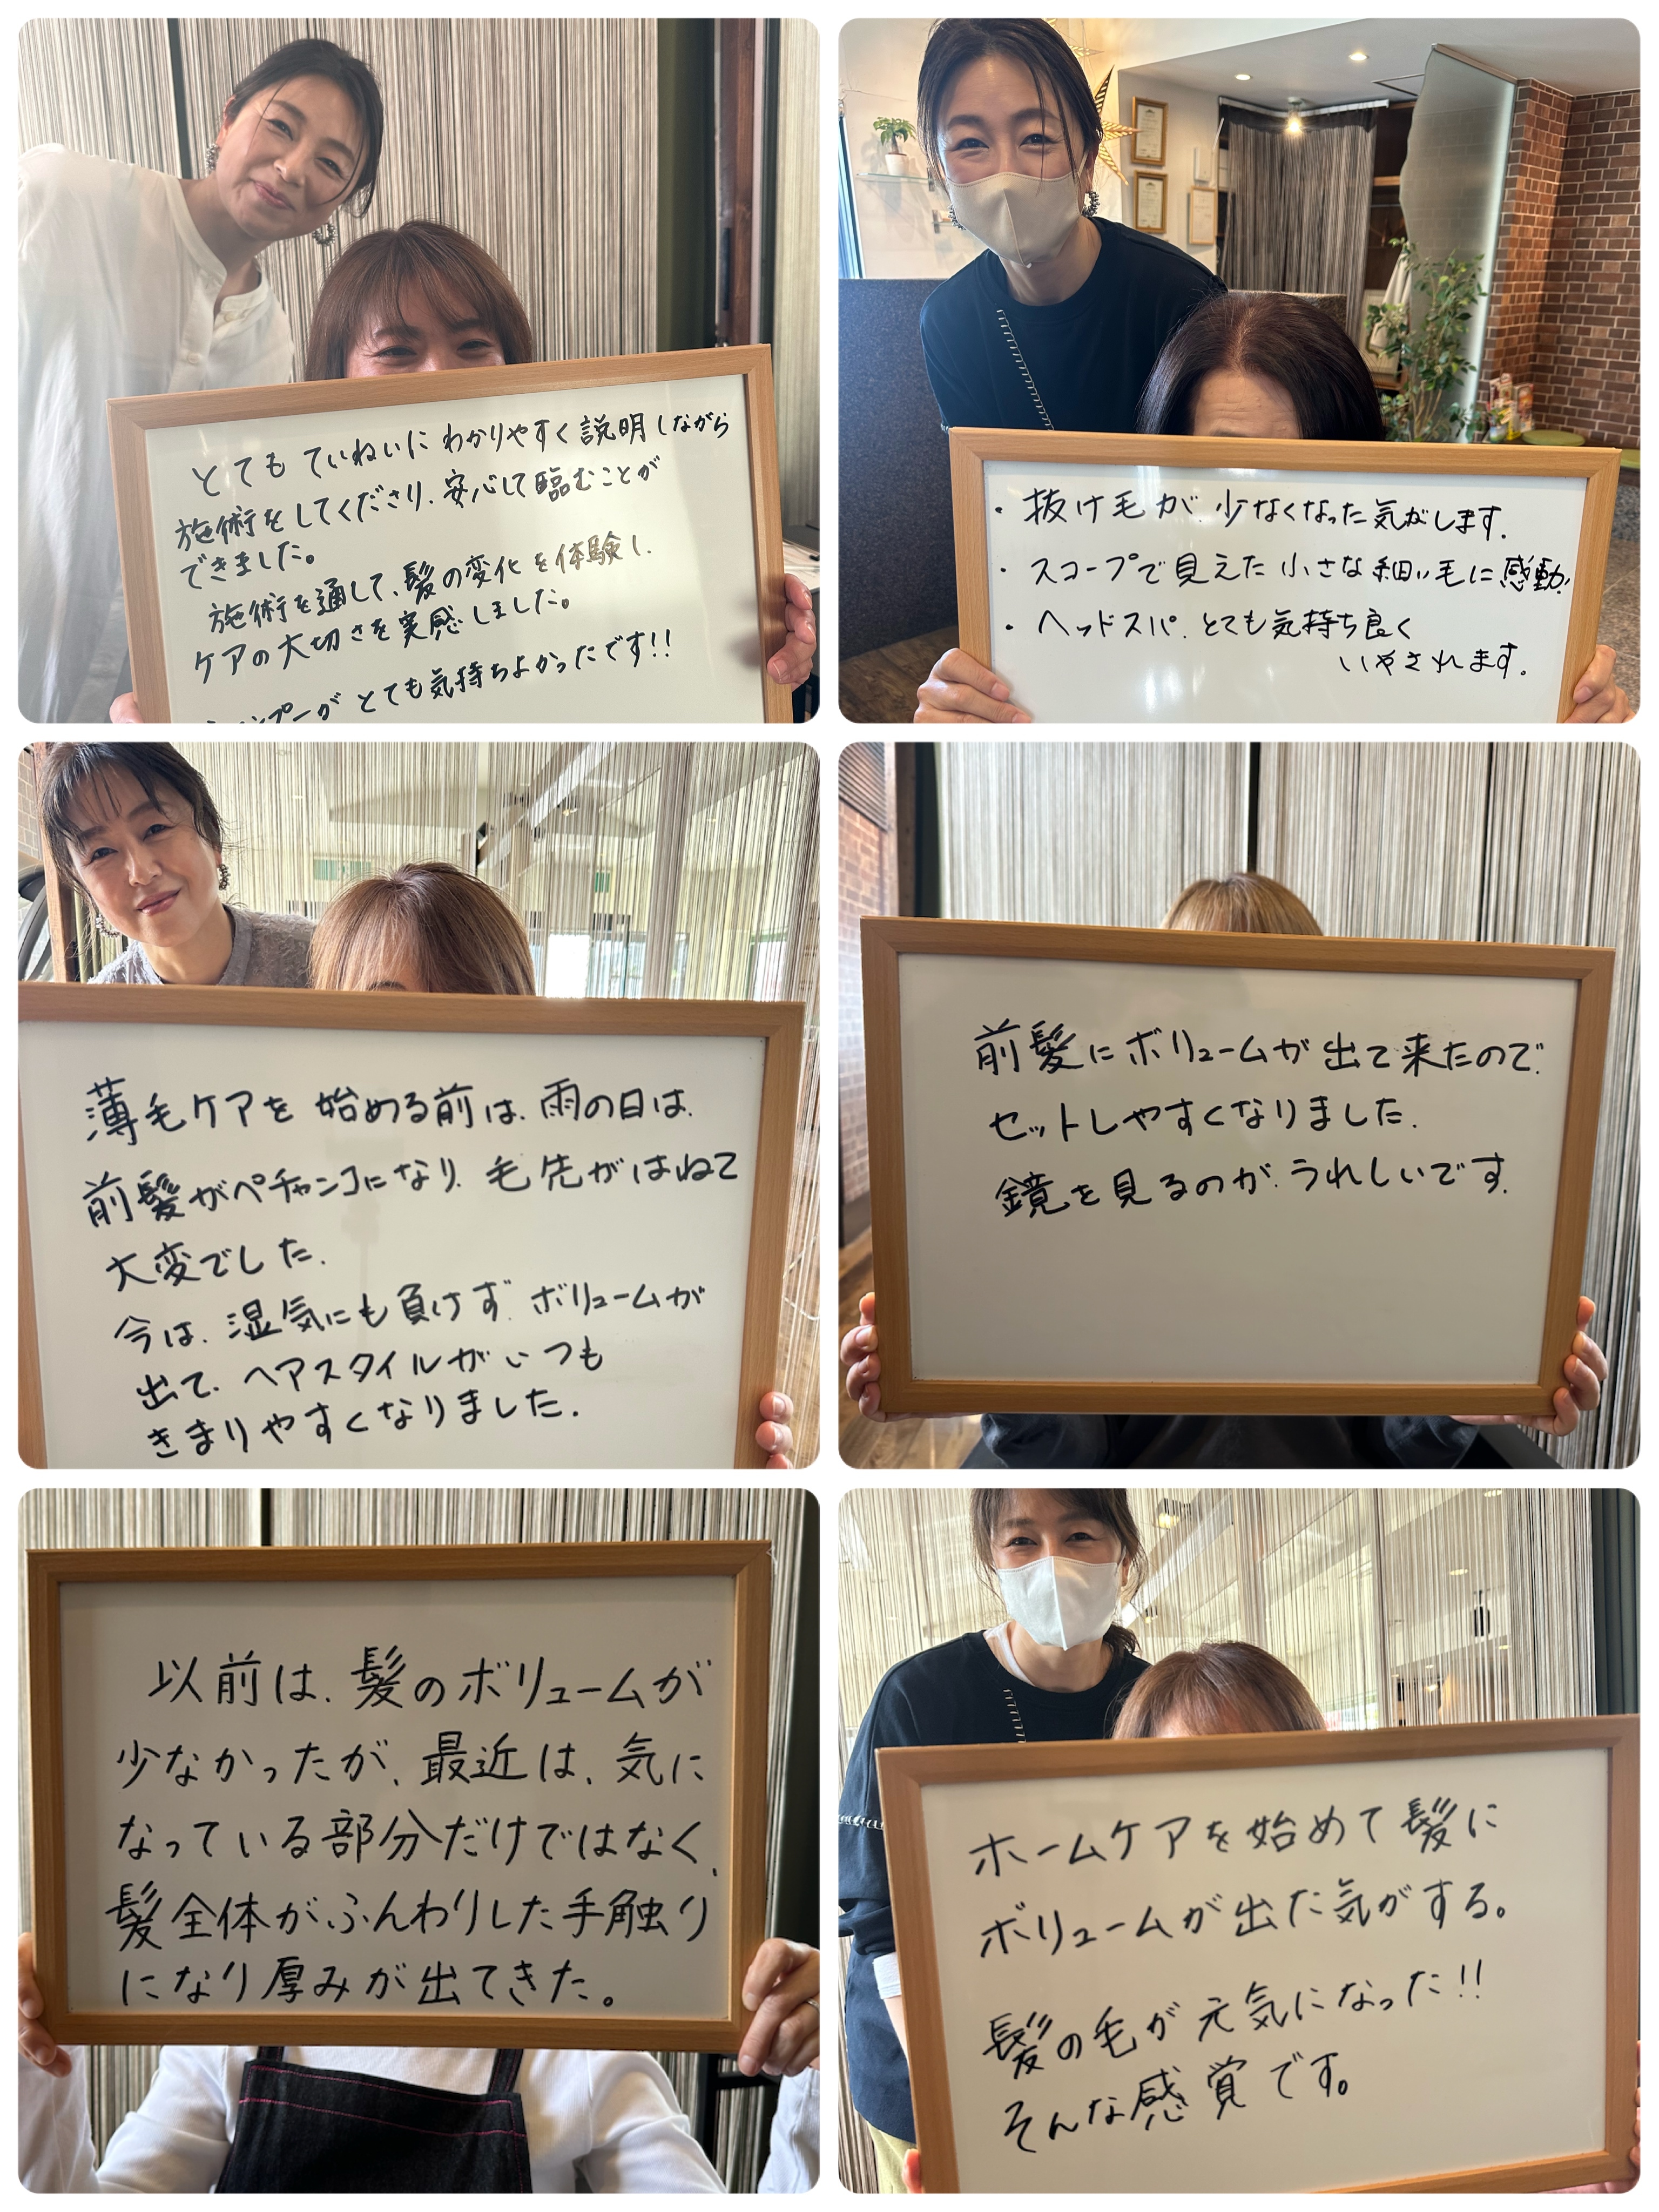 とても ていねいに わかりやすく 説明しながら
施術をしてくださり、安心して臨むことが
できました。
施術を通して、髪の変化を体験し、
ケアの大切さを実感しました。
シャンプーが とても気持ちよかったです!!
・抜け毛が、少なくなった気がします。
・スコープで見えた小さな細い毛に感動!
・ヘッドスパ、とても気持ち良く
いやされます。
薄毛ケアを 始める前は、雨の日は、
前髪がペチャンコになり、毛先がはねて
大変でした。
今は、湿気にも負けず、ボリュームが
出て、ヘアスタイルがいつも
きまりやすくなりました。
前髪にボリュームが出て来たので、
セットしやすくなりました。
鏡を見るのが、うれしいです。
以前は、髪のボリュームが
少なかったが、最近は、気に
なっている部分だけではなく、
髪全体がふんわりした手触り
になり厚みが出てきた。
ホームケアを始めて髪に
ボリュームが出た気がする。
髪の毛が元気になった!!
そんな感覚です。